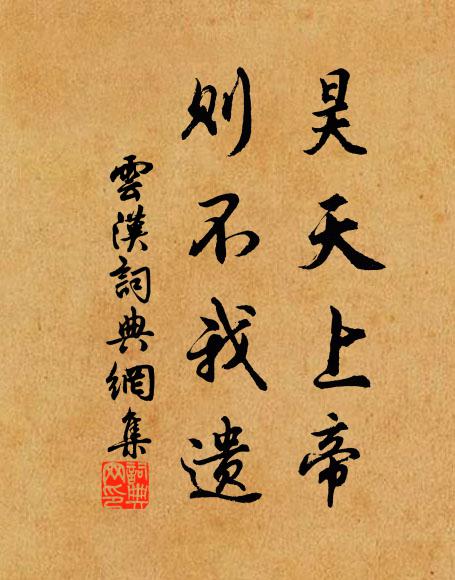 昊天上帝
則不我遺
雲漢詞典網集
詞典网印